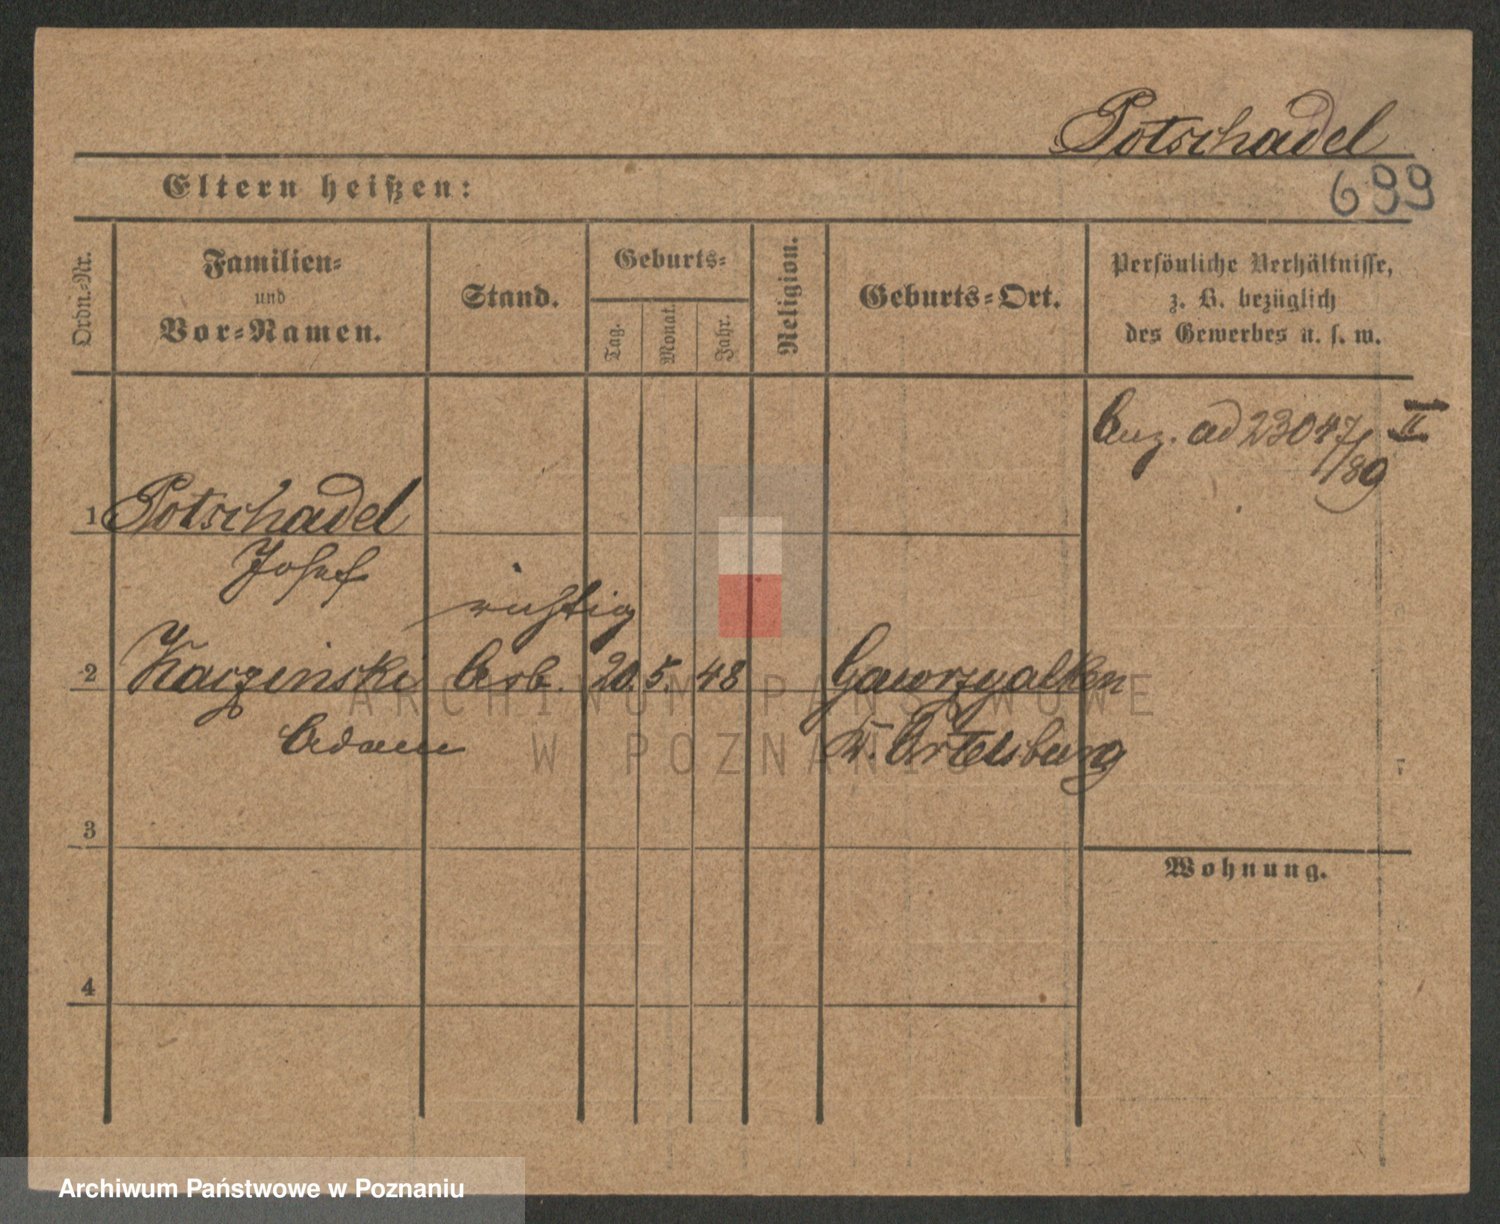 Potschadel
Eltern heißen:
699
Ordn.-Nr.
Familien-
und
Vor-Namen.
Stand.
Geburts-
Tag.
Monat.
Jahr.
Religion.
Geburts-Ort.
Persönliche Verhältnisse,
z. B. bezüglich
des Gewerbes u. s. w.
Anz. ad 23047 II
/89
1 Potschadel
Josef
richtig
2 Kaczinski Arb. 20. 5. 48 Gawrzyalken
Adam K. Ortelsburg
3
Wohnung.
4
ARCHIWUM PAŃSTWOWE
W POZNANIU
ARCHIWUM PAŃSTWOWE
W POZNANIU
Archiwum Państwowe w Poznaniu